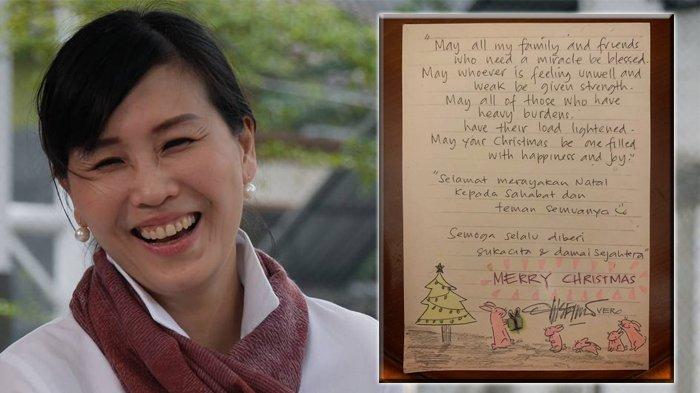 "May all my family and friends
who need a miracle be blessed.
May whoever is feeling unwell and
weak be given strength.
May all of those who have
heavy burdens,
have their load lightened.
May your Christmas be one filled
with happiness and joy."
"Selamat merayakan Natal
kepada Sahabat dan
teman semuanya
Semoga selalu diberi
sukacita & damai Sejahtera"
MERRY CHRISTMAS
VERO